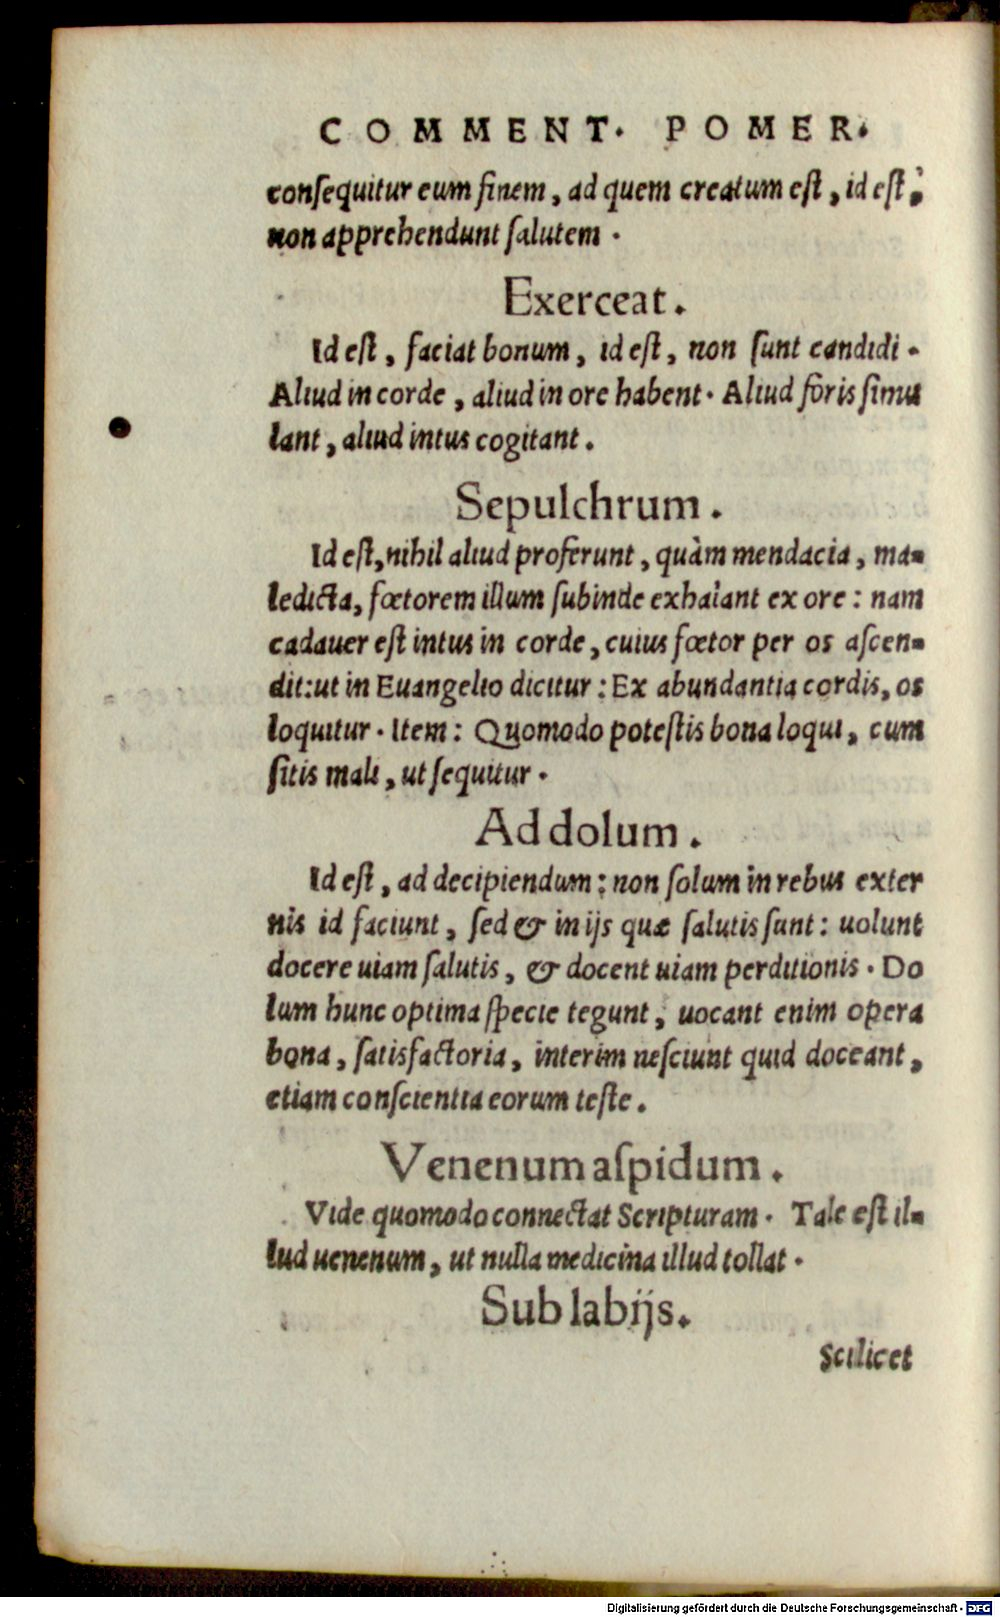 COMMENT. POMER.
conſequitur eum finem, ad quem creatum eſt, id eſt,
non apprehendunt ſalutem.
Exerceat.
Id eſt, faciat bonum, id eſt, non ſunt candidi.
Aliud in corde, aliud in ore habent. Aliud foris ſimu
lant, aliud intus cogitant.
Sepulchrum.
Id eſt, nihil aliud proferunt, quàm mendacia, ma-
ledicta, fœtorem illum ſubinde exhalant ex ore: nam
cadauer eſt intus in corde, cuius fœtor per os aſcen-
dit: ut in Euangelio dicitur: Ex abundantia cordis, os
loquitur. Item: Quomodo poteſtis bona loqui, cum
ſitis mali, ut ſequitur.
Ad dolum.
Id eſt, ad decipiendum: non ſolum in rebus exter
nis id faciunt, ſed & in ijs quæ ſalutis ſunt: uolunt
docere uiam ſalutis, & docent uiam perditionis. Do
lum hunc optima ſpecie tegunt, uocant enim opera
bona, ſatisfactoria, interim neſciunt quid doceant,
etiam conſcientia eorum teſte.
Venenum aſpidum.
Vide quomodo connectat Scripturam. Tale eſt il-
lud uenenum, ut nulla medicina illud tollat.
Sub labijs.
Scilicet
Digitalisierung gefördert durch die Deutsche Forschungsgemeinschaft - DFG